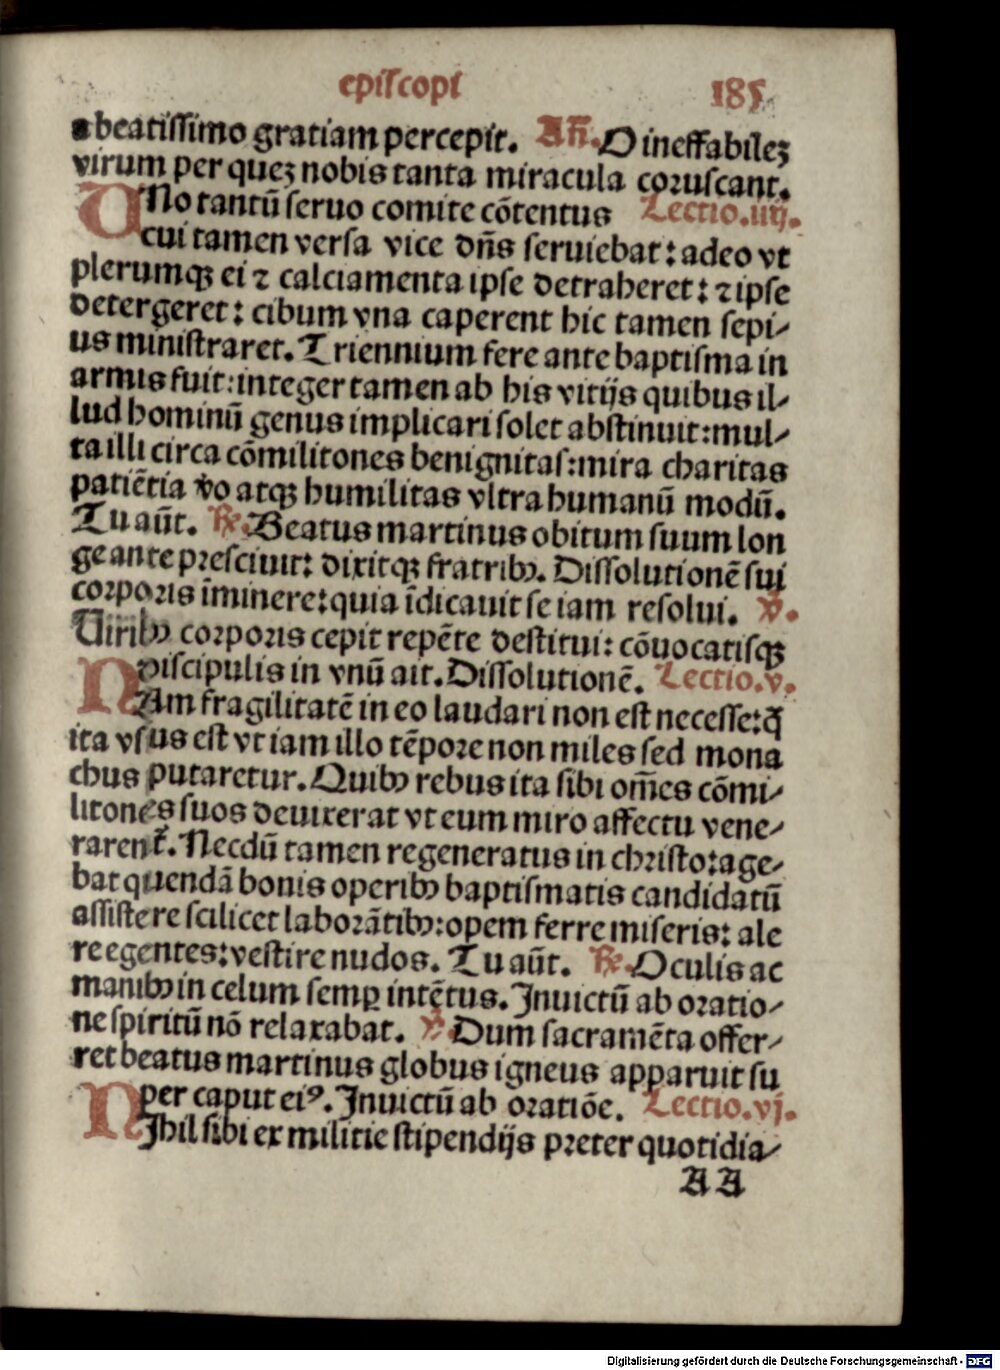 episcopi 185
a beatissimo gratiam percepit. Añ. O ineffabileꝫ
virum per queꝫ nobis tanta miracula coruscant.
UNo tantū seruo comite cōtentus Lectio.iiij.
cui tamen versa vice dñs seruiebat: adeo vt
plerumqꝫ ei ⁊ calciamenta ipse detraheret: ⁊ ipse
detergeret: cibum vna caperent hic tamen sepi⸗
us ministraret. Triennium fere ante baptisma in
armis fuit: integer tamen ab his vitijs quibus il⸗
lud hominū genus implicari solet abstinuit: mul⸗
ta illi circa cōmilitones benignitas: mira charitas
patiētia v̊o atqꝫ humilitas vltra humanū modū.
Tu aūt. ℟. Beatus martinus obitum suum lon
ge ante presciuit: dixitqꝫ fratribꝰ. Dissolutionē sui
corporis īminere: quia īdicauit se iam resolui. ℣.
Uiribꝰ corporis cepit repēte destitui: cōuocatisqꝫ
discipulis in vnū ait. Dissolutionē. Lectio.v.
NAm fragilitatē in eo laudari non est necesse: q̄
ita vsus est vt iam illo tēpore non miles sed mona
chus putaretur. Quibꝰ rebus ita sibi om̄es cōmi⸗
litones suos deuixerat vt eum miro affectu vene⸗
rarent̄. Necdū tamen regeneratus in christo: age⸗
bat quendā bonis operibꝰ baptismatis candidatū
assistere scilicet laborātibꝰ: opem ferre miseris: ale
re egentes: vestire nudos. Tu aūt. ℟. Oculis ac
manibꝰ in celum semꝑ intētus. Inuictū ab oratio⸗
ne spiritū nō relaxabat. ℣. Dum sacramēta offer⸗
ret beatus martinus globus igneus apparuit su
per caput eiꝰ. Inuictū ab oratiōe. Lectio.vj.
NIhil sibi ex militie stipendijs preter quotidia⸗
AA
Digitalisierung gefördert durch die Deutsche Forschungsgemeinschaft - DFG